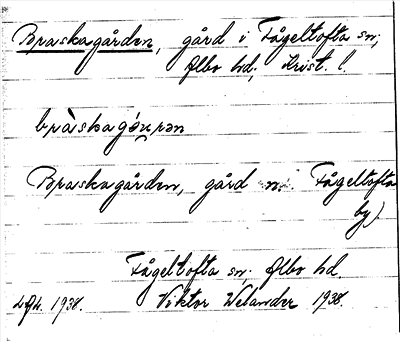 Braskagården, gård i Fågeltofta sn,
Albo hd, Krist. l.
bràskagǻu̯rən
Braskagården, gård Fågeltofta
by)
Fågeltofta sn, Albo hd.
1938. Viktor Welander 1938.